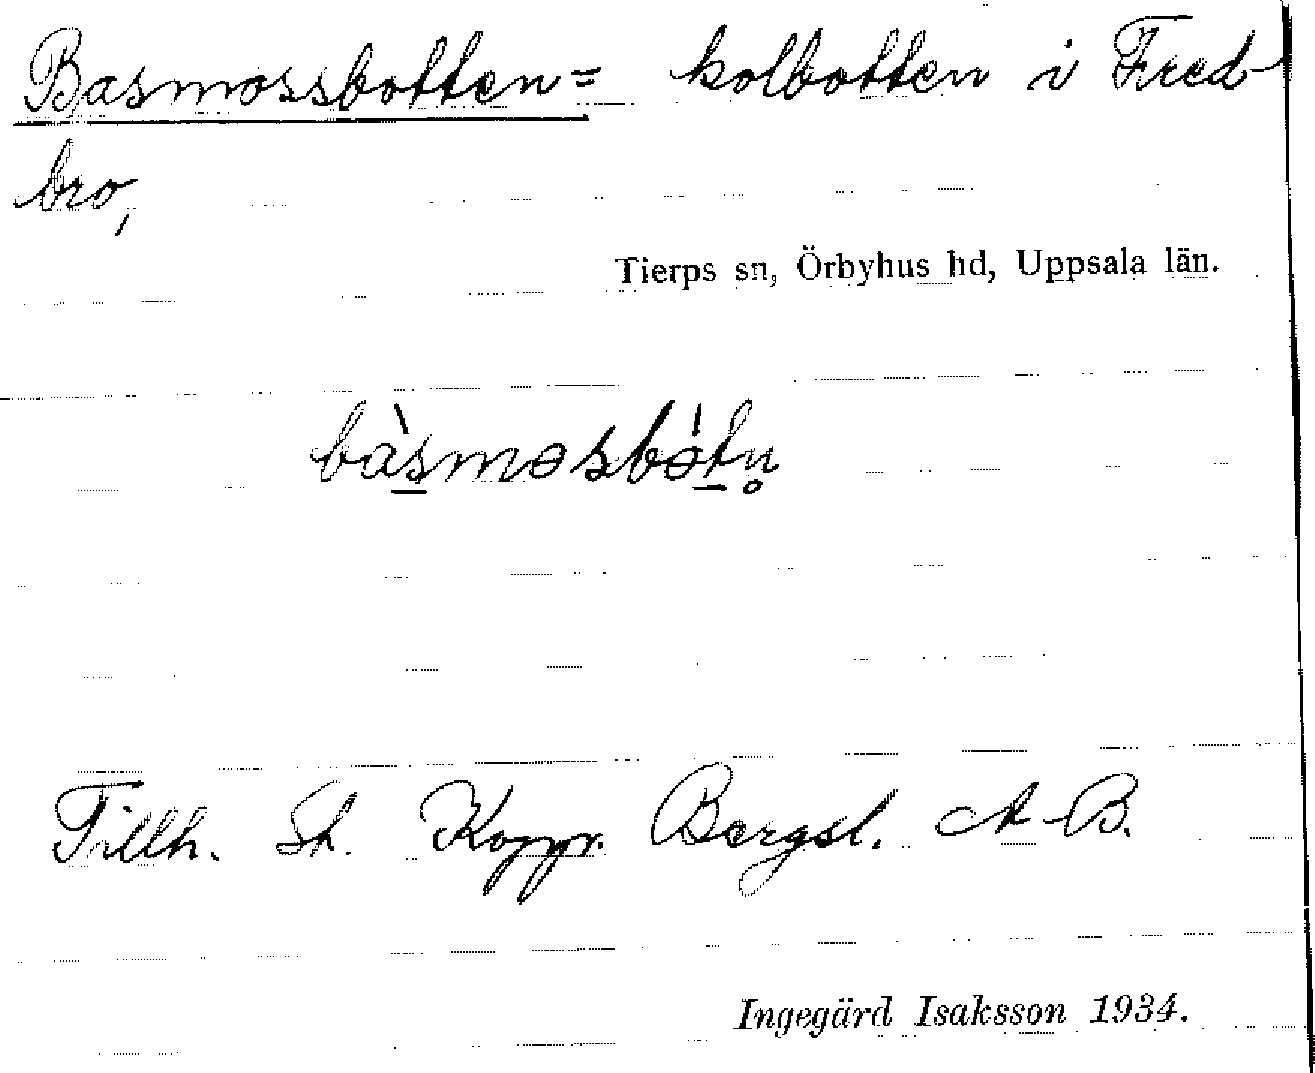 Basmossbotten = kolbotten i Fred-
bro,
Tierps sn, Örbyhus hd, Uppsala län.
bàs̲məsbə́t̲n̥
Tillh. St. Koppr. Bergsl. A-B.
Ingegärd Isaksson 1934.